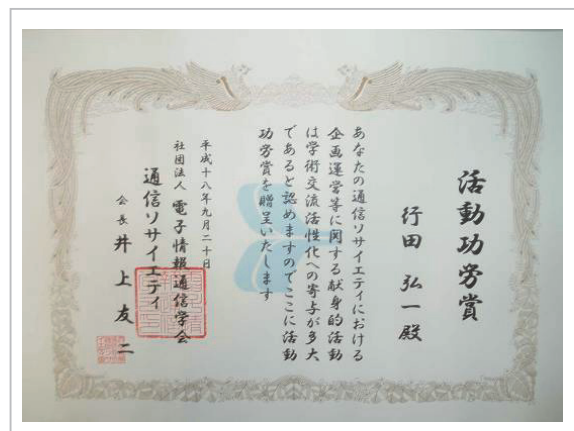 活動功労賞
行田 弘一 殿
あなたの通信ソサイエティにおける
企画運営等に関する献身的活動
は学術交流活性化への寄与が多大
であると認めますのでここに活動
功労賞を贈呈いたします
平成十八年九月二十日
社団法人 電子情報通信学会
通信ソサイエティ
会長 井上友二